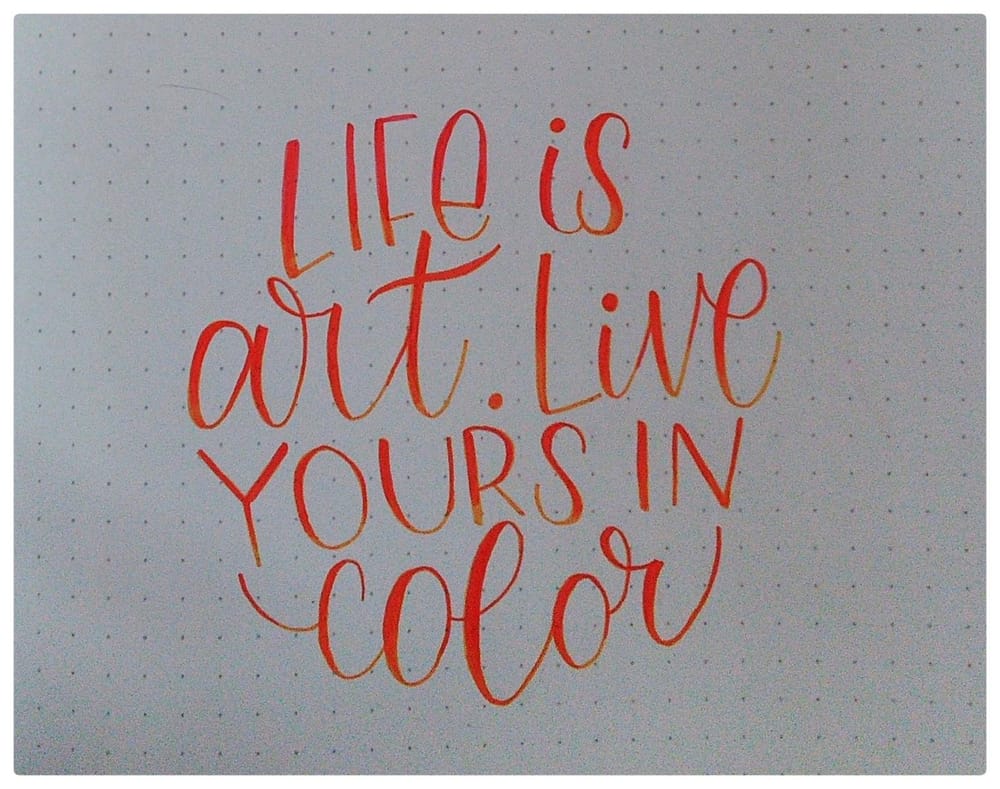 LIFe is
art. Live
YOURS IN
color